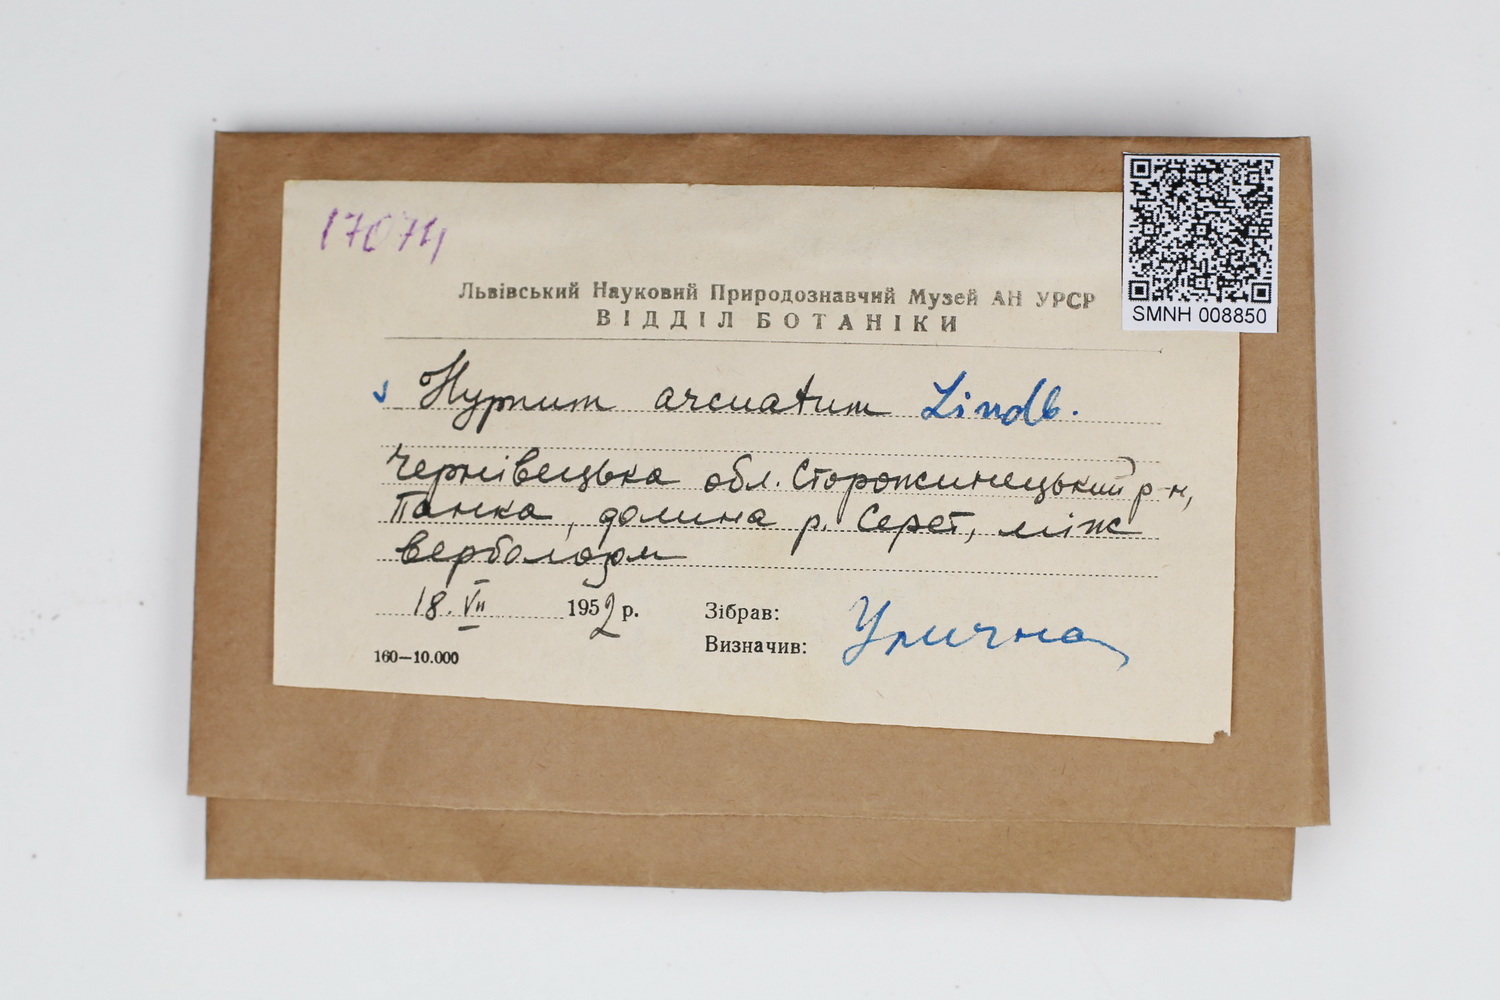 17074
SMNH 008850
Львівський Науковий Природознавчий Музей АН УРСР
ВІДДІЛ БОТАНІКИ
Hypnum arcuatum Lindb.
Чернівецька обл. Сторожинецький р-н,
Панка, долина р. Серет, між
верболозом
18.VII 1952 р.
Зібрав:
Визначив: Улична
160—10.000